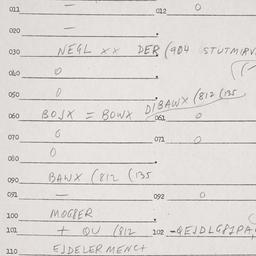 011 – 012 0
020 –
030 NEGL xx DER (904 STUTMIRV
040 0
050 0 DIBAWX (812 (135
060 BOJX = BOWX 061 0
070 0 071 0
080 0
090 BAWX (812 (135
091 – 092 0
100 MOGPER
101 + QU (812 102
110 EJDELERMENCT